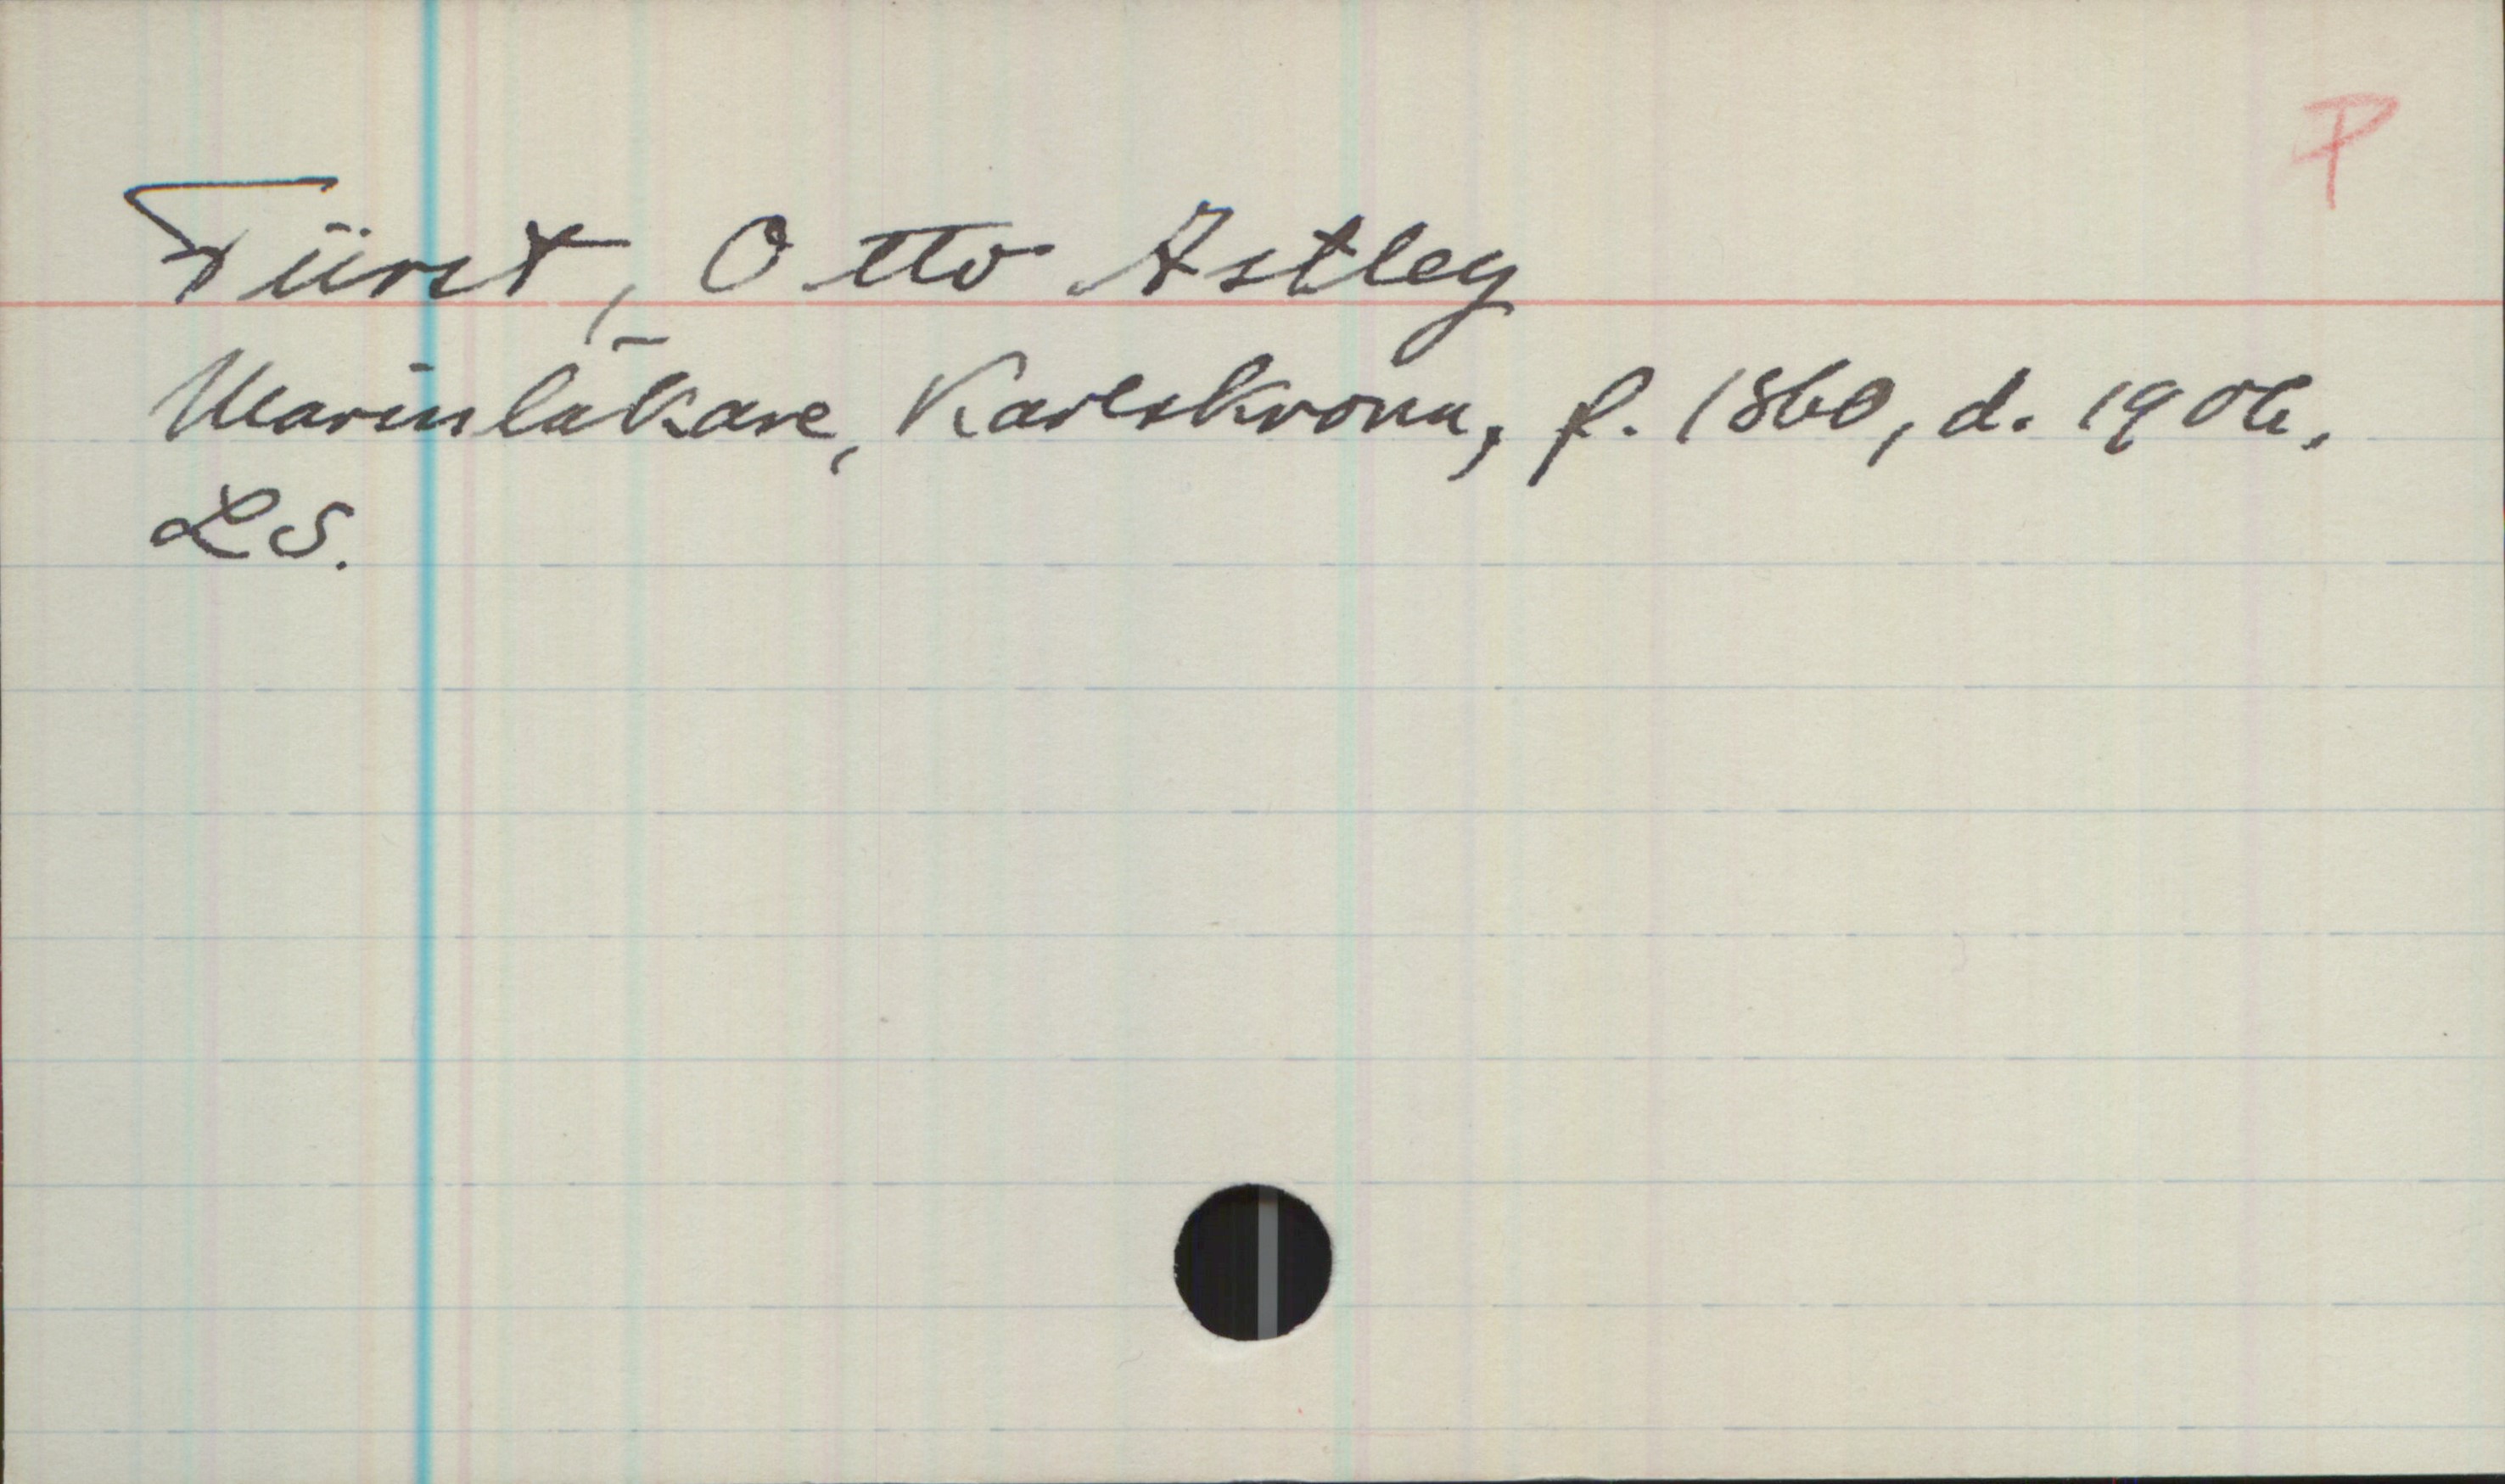 P
Fürst, Otto Astley
Marinläkare, Karlskrona, f. 1860, d. 1906.
LS.